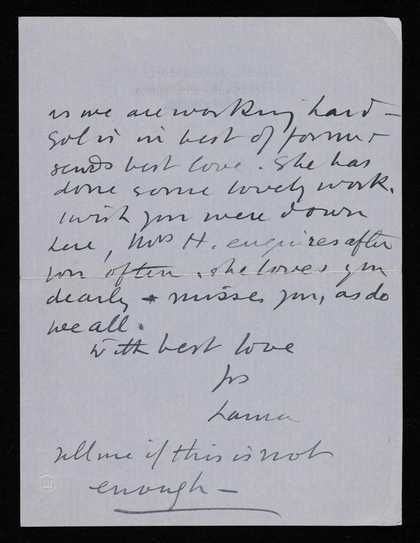 as we are working hard –
Sol is in best of form &
sends best love. She has
done some lovely work.
I wish you were down
here, Mrs H. enquires after
you often. she loves you
dearly & misses you, as do
we all.
With best love
Yrs
Laura
Tell me if this is not
enough –